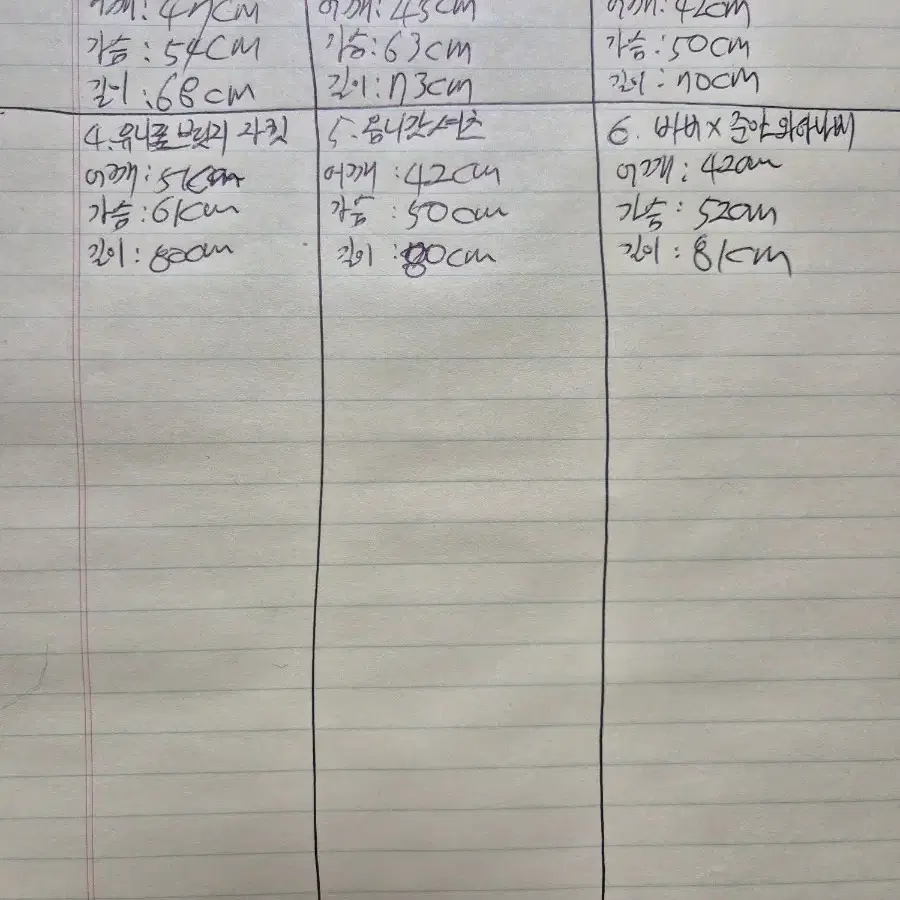 어깨: 47cm
가슴: 54cm
길이: 68cm
어깨: 45cm
가슴: 63cm
길이: 73cm
어깨: 42cm
가슴: 50cm
길이: 70cm
4. 유니클로 브릿지 자킷
어깨: 51cm
가슴: 61cm
길이: 80cm
5. 옴니갓 셔츠
어깨: 42cm
가슴: 50cm
길이: 80cm
6. 바버 x 준야 와타나베
어깨: 42cm
가슴: 52cm
길이: 81cm